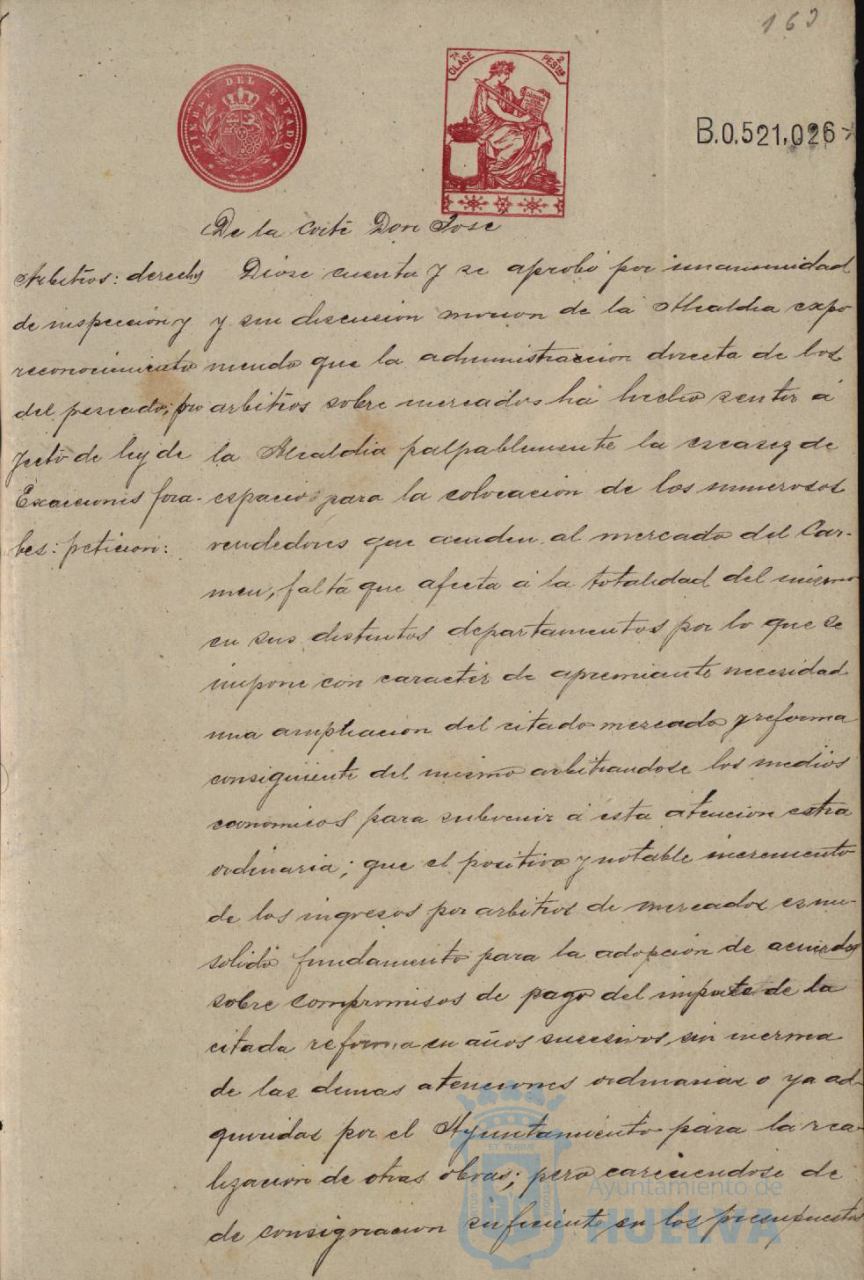 163
TIMBRE DEL ESTADO
7ª CLASE 2 PESTAS
B.0.521,026
De la Corte Don Jose
Arbitrios: derechos
de inspección y
reconocimiento
del pescado; pro
yecto de ley de
Exacciones
petición:
Diose cuenta y se aprobó por unanimidad
y sin discusion mocion de la Alcaldia expo
niendo que la administracion directa de los
arbitrios sobre mercados ha hecho sentir á
la Alcaldia palpablemente la escasez de
espacio para la colocacion de los numerosos
vendedores que acuden al mercado del Car-
men, falta que afecta á la totalidad del mismo
en sus distintos departamentos por lo que se
impone con caracter de apremiante necesidad
una ampliacion del citado mercado y reforma
consiguiente del mismo arbitrandose los medios
economicos para subvenir á esta atencion extra
ordinaria; que el positivo y notable incremento
de los ingresos por arbitrios de mercados es un
solido fundamento para la adopción de acuerdos
sobre compromisos de pago del importe de la
citada reforma en años sucesivos, sin merma
de las demas atenciones ordinarias o ya ad-
quiridas por el Ayuntamiento para la rea-
lizacion de otras obras; pero careciendose de
de consignacion suficiente en los presupuestos
Ayuntamiento de
HUELVA